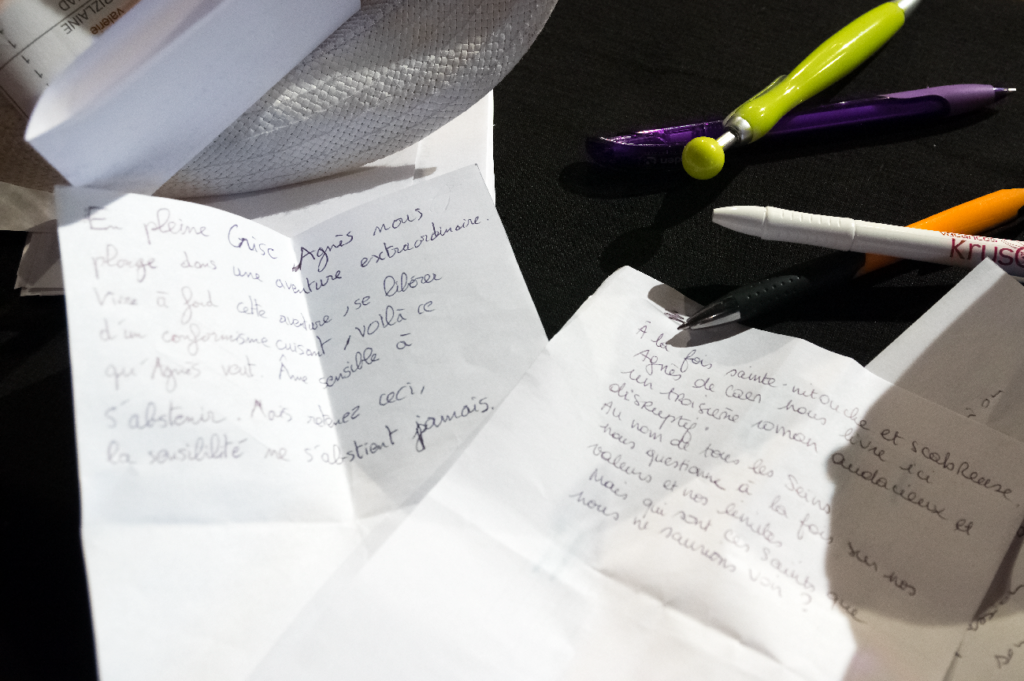 GIZLAINE
Valérie
En pleine Crise Agnès nous
plonge dans une aventure extraordinaire.
Vivre à fond cette aventure, se libérer
d'un conformisme cuisant, voilà ce
qu'Agnès veut. Âme sensible à
s'abstenir. Mais retenez ceci,
la sensibilité ne s'abstient jamais.
À la fois sainte-nitouche et scabreuse,
Agnès de Caer nous livre ici
un troisième roman audacieux et
disruptif.
Au nom de tous les Seins
nous questionne à la fois sur nos
valeurs et nos limites
Mais qui sont ces saints que
nous ne saurions voir ?
VACANCES
KRUSO